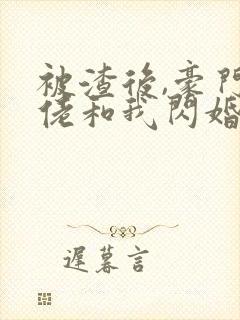 被渣後,豪門
佬和我閃婚
遲暮言